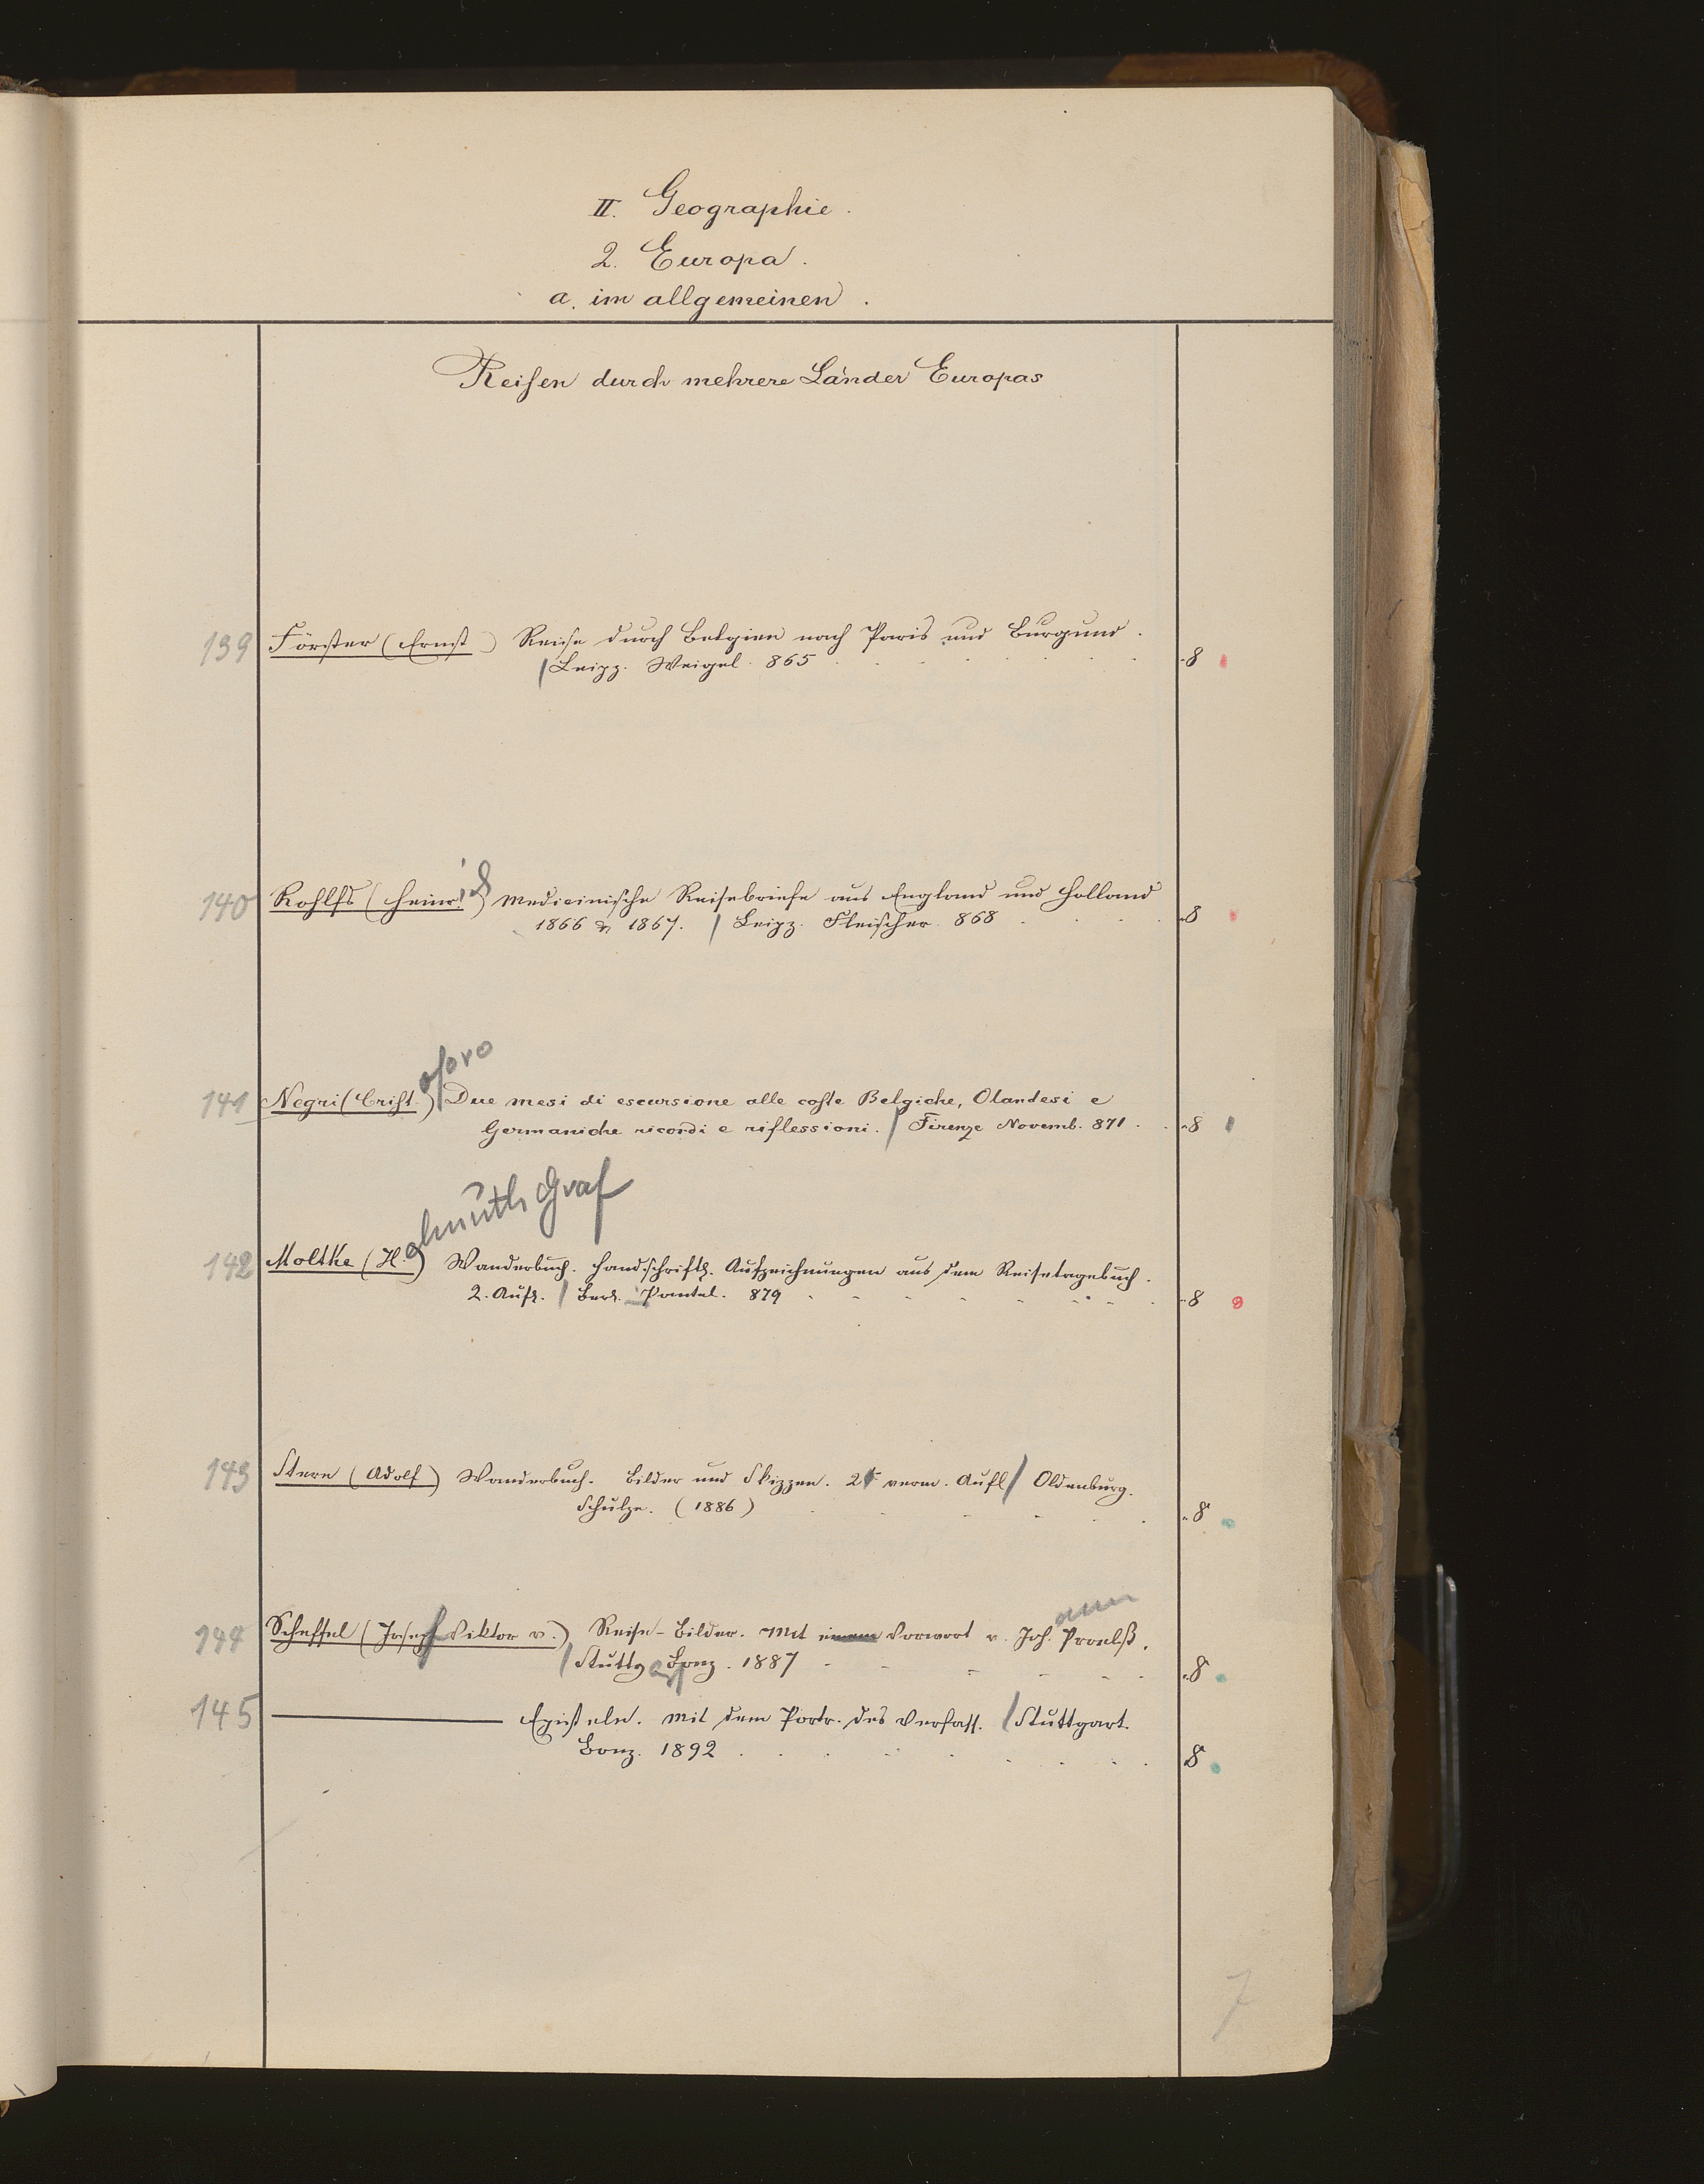 II. Geographie.
2. Europa.
a. im allgemeinen.
Reisen durch mehrere Länder Europas
139 Förster (Ernst) Reise durch Belgien nach Paris und Burgund.
/ Leipz. Weigel. 865 . . . . . . 8
140 Rohlfs (Heinrich) Medicinische Reisebriefe aus England und Holland
1866 & 1867. / Leipz. Fleischer. 868 . . . . 8
oforo
141 Negri (Crist.) / Due mesi di escursione alle coste Belgiche, Olandesi e
Germaniche ricordi e riflessioni. / Firenze Novemb. 871 . . 8
elmuth Graf
142 Moltke (H.) Wanderbuch. Handschriftl. Aufzeichnungen aus dem Reisetagebuch.
2. Aufl. / Berl. Paetel. 879 . . . . . . 8
143 Stern (Adolf) Wanderbuch. Bilder und Skizzen. 2t verm. Aufl / Oldenburg.
Schulze. (1886) . . . . . 8°
ann
144 Scheffel (Josef Viktor v.) Reise-Bilder. Mit einem Vorwort v. Joh. Proelß.
/ Stuttg Bonz. 1887 . . . . . 8°
145 ——— Episteln. Mit dem Portr. des Verfass. / Stuttgart.
Bonz. 1892 . . . . . . . 8°
7